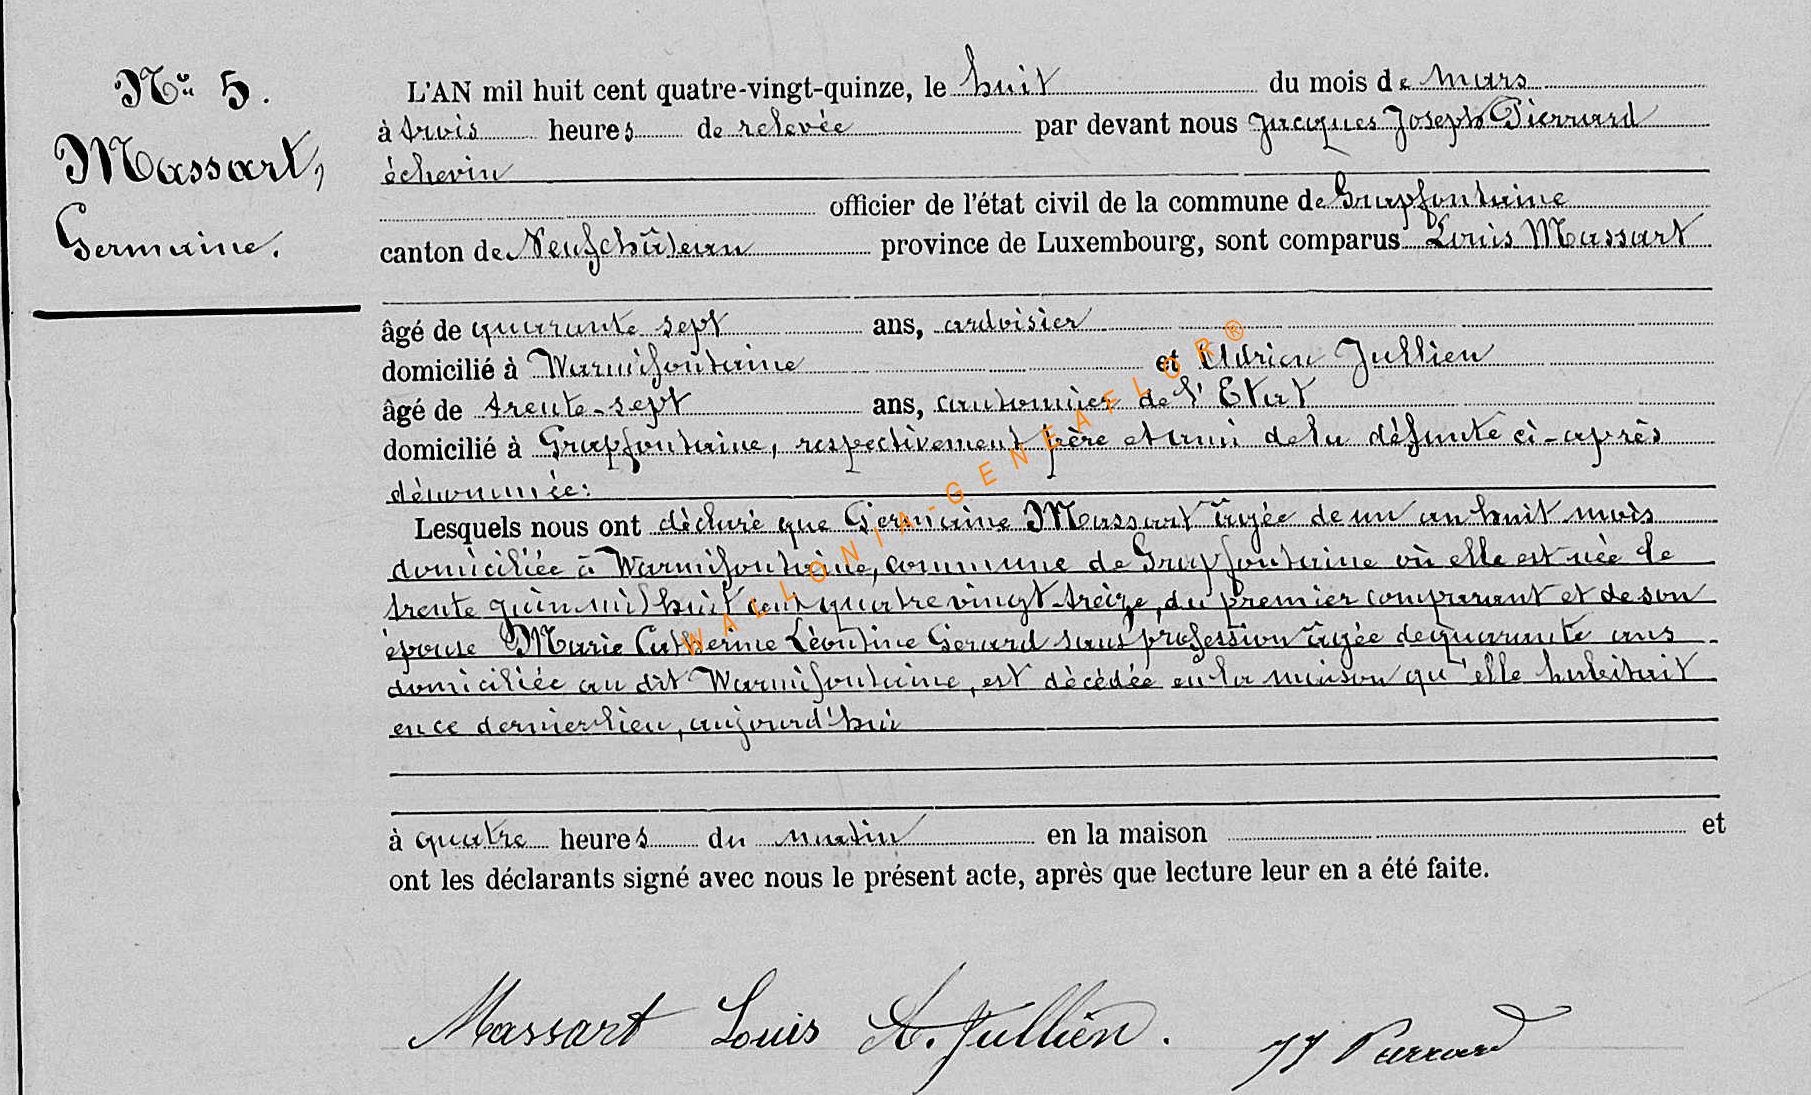 N° 5.
Massart,
Germaine.
L'AN mil huit cent quatre-vingt-quinze, le huit du mois de mars
à trois heures de relevée par devant nous Jacques Joseph Pierrard
échevin
officier de l'état civil de la commune de Grapfontaine
canton de Neufchâteau province de Luxembourg, sont comparus Louis Massart
âgé de quarante sept ans, ardoisier
domicilié à Warmifontaine et Adrien Jullien
âgé de trente-sept ans, cantonnier de l'Etat
domicilié à Grapfontaine, respectivement père et ami de la défunte ci-après
dénommée:
Lesquels nous ont déclaré que Germaine Massart âgée de un an huit mois
domiciliée à Warmifontaine, commune de Grapfontaine où elle est née le
trente juin mil huit cent quatre vingt-treize, du premier comparant et de son
épouse Marie Catherine Léontine Gerard sans profession âgée de quarante ans
domiciliée au dit Warmifontaine, est décédée en la maison qu'elle habitait
en ce dernier lieu, aujourd'hui
à quatre heures du matin en la maison et
ont les déclarants signé avec nous le présent acte, après que lecture leur en a été faite.
Massart Louis A. Jullien. JJ Pierrard
WALLONIA-GENEAFLOR®